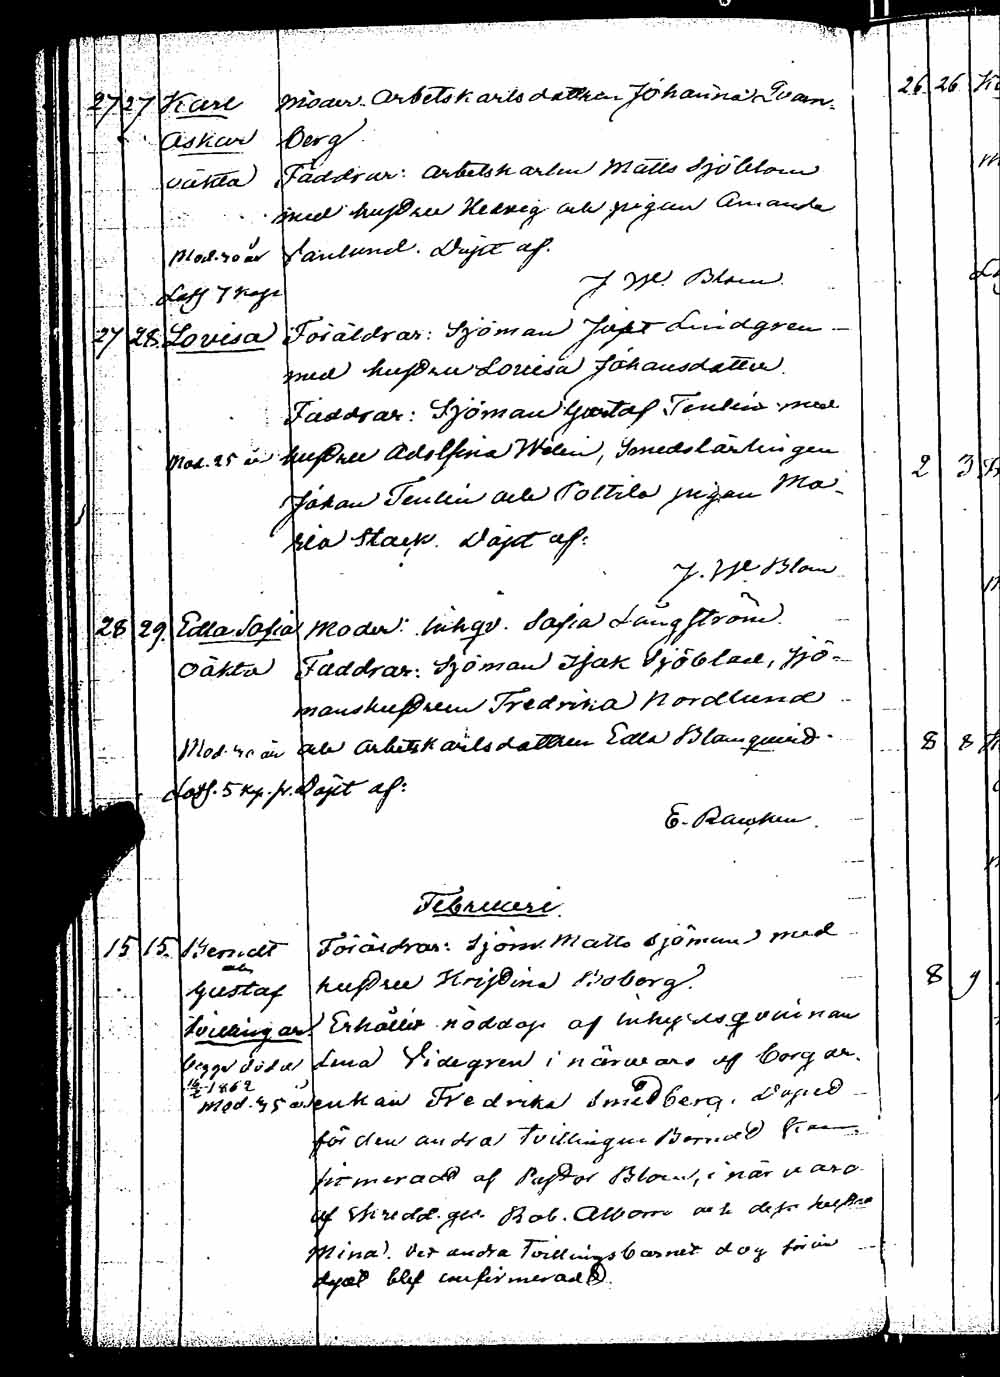 27 27 Karl Moder: Arbetskarls dottren Johanna Qvarn-
Askar berg
oäkta Faddrar: Arbetskarlen Matts Sjöblom
med hustru Hedvig och pigan Amanda
Mod. 20 år Döpt af.
7 kop. J. W. Blom
27 28. Lovisa Föräldrar: Sjöman Lindgren
med hustru Lovisa Johansdotter.
Faddrar: Sjöman Gustaf Tenlin med
Mod. 25 år hustru Adolfina Welin, Smedslärlingen
Johan Tenlin och pigan Ma-
ria Stack. Döpt af:
J. W. Blom
28 29. Edla Sofia Moder: inhqv. Sofia Långström.
Oäkta Faddrar: Sjöman Isak Sjöblad, Sjö-
manshustrun Fredrika Nordlund
Mod. år och arbetskarlsdottren Edla Blomqvist.
5 kp. Döpt af:
E. Rancken.
Februari.
15 15. Berndt Föräldrar: Sjöm. Matts Sjöman med
och
Gustaf hustru Kristina Boberg.
Tvillingar Erhållit nöddop af inhysesqvinnan
begge döde Lena Widegren i närvaro af borgar-
1862
Mod. 35 år enkan Fredrika Smedberg. Dopet
för den andra tvillingen Berndt kon-
firmeradt af Pastor Blom, i närvaro
af Skredd. ges. Rob. Alborn och dess hustru
Mina. Det andra Tvillingsbarnet dog förin
döpet blef confirmeradt.
26 26
2 3
8 8
8 9